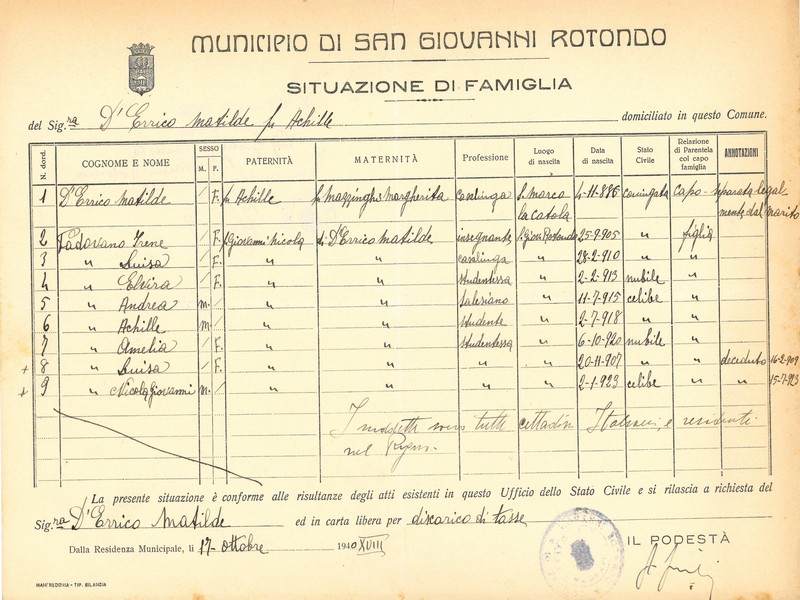 MUNICIPIO DI SAN GIOVANNI ROTONDO
SITUAZIONE DI FAMIGLIA
del Sig.ra D'Errico Matilde fu Achille domiciliato in questo Comune.
N. dord. COGNOME E NOME SESSO M. F. PATERNITÀ MATERNITÀ Professione Luogo di nascita Data di nascita Stato Civile Relazione di Parentela col capo famiglia ANNOTAZIONI
1 D'Errico Matilde / F. fu Achille fu Mazzinghi Margherita casalinga S. Marco la Catola 4-11-886 coniugata capo separata legalmente dal marito
2 Padovano Irene / F. fu Giovanni Nicola di D'Errico Matilde insegnante S. Giov. Rotondo 25-9-905 " figlia
3 " Luisa / F. " " casalinga " 28-2-910 " "
4 " Elvira / F. " " studentessa " 2-2-913 nubile "
5 " Andrea M. / " " Salesiano " 11-7-915 celibe "
6 " Achille M. / " " studente " 2-7-918 " "
7 " Amelia / F. " " studentessa " 6-10-920 nubile "
+ 8 " Luisa / F. " " " " 20-11-907 " " deceduto 16-2-909
+ 9 " Nicola Giovanni M. / " " " " 2-1-923 celibe " " 15-7-923
I suddetti sono tutti cittadini Italiani, e residenti
nel Regno.
La presente situazione è conforme alle risultanze degli atti esistenti in questo Ufficio dello Stato Civile e si rilascia a richiesta del
Sig.ra D'Errico Matilde ed in carta libera per discarico di tasse
Dalla Residenza Municipale, li 17 ottobre 1940 XVIII
IL PODESTÀ
MANFREDONIA - TIP. BILANCIA